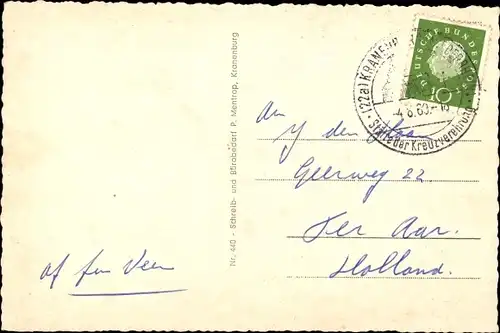 DEUTSCHE BUNDESPOST
10
(22a) KRANENBURG
-4.8.60.-10
Stätte der Kreuzverehrung
Nr. 440 - Schreib- und Bürobedarf P. Mentrop, Kranenburg
An
Y den Haan
Geerweg 22
Ter Aar.
Holland.